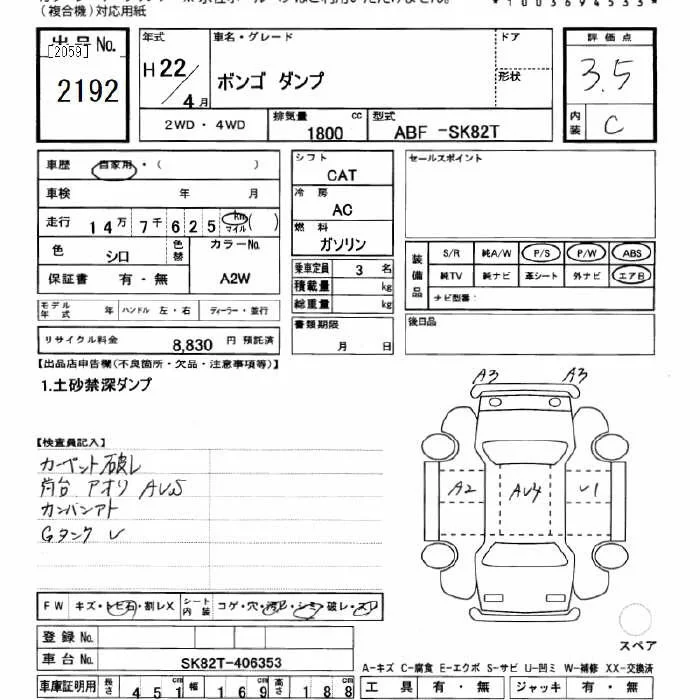 (複合機)対応用紙
*1003694533*
出品 No.
[2059]
2192
年式
H 22/4月
車名・グレード
ボンゴ ダンプ
ドア
形状
評価点
3.5
内装
C
2WD・4WD
排気量 cc
1800
型式
ABF -SK82T
車歴 自家用・( )
車検 年 月
走行 14万7千625 km マイル ( )
色 シロ
色替
カラーNo.
A2W
保証書 有 - 無
モデル年式 年 ハンドル 左・右 ディーラー・並行
リサイクル料金 8,830 円 預託済
シフト
CAT
冷房
AC
燃料
ガソリン
乗車定員 3 名
積載量 kg
総重量 kg
書類期限
月 日
セールスポイント
装備品
S/R 純A/W P/S P/W ABS
純TV 純ナビ 革シート 外ナビ エアB
ナビ型番:
後日品
【出品店申告欄(不良箇所・欠品・注意事項等)】
1.土砂禁深ダンプ
【検査員記入】
カーペット破レ
荷台 アオリ AUS
カンバンアト
Gタンク U
A3 A3
A2 AU4 U1
FW キズ・トビ石・割レX
シート内装 コゲ・穴・汚レ・シミ・破レ・スレ
登録 No.
車台 No. SK82T-406353
スペア
A-キズ C-腐食 E-エクボ S-サビ U-凹ミ W-補修 XX-交換済
車庫証明用 長さ 451cm 幅 169cm 高さ 188cm
工具 有・無 ジャッキ 有・無